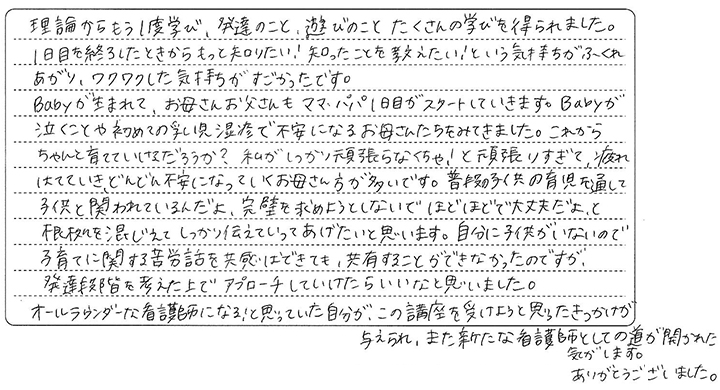 理論からもう1度学び、発達のこと、遊びのこと たくさんの学びを得られました。
1日目を終了したときからもっと知りたい!知ったことを教えたい!という気持ちがふくれ
あがり、ワクワクした気持ちがすごかったです。
Babyが生まれて、お母さんお父さんも ママ・パパ1日目がスタートしていきます。Babyが
泣くことや初めての乳児湿疹で不安になるお母さんたちをみてきました。これから
ちゃんと育てていけるだろうか? 私がしっかり頑張らなくちゃ!と頑張りすぎて、疲れ
はてていき、どんどん不安になっていくお母さん方が多いです。普段の子供の育児を通して
子供と関われているんだよ、完璧を求めようとしないで ほどほどで大丈夫だよ、と
根拠を混じえて しっかり伝えていってあげたいと思います。自分に子供がいないので
子育てに関する苦労話を共感はできても、共有することができなかったのですが、
発達段階を考えた上で アプローチしていけたらいいなと思いました。
オールラウンダーな看護師になる!と思っていた自分が、この講座を受けようと思ったきっかけが
与えられ、また新たな看護師としての道が開かれた
気がします。
ありがとうございました。